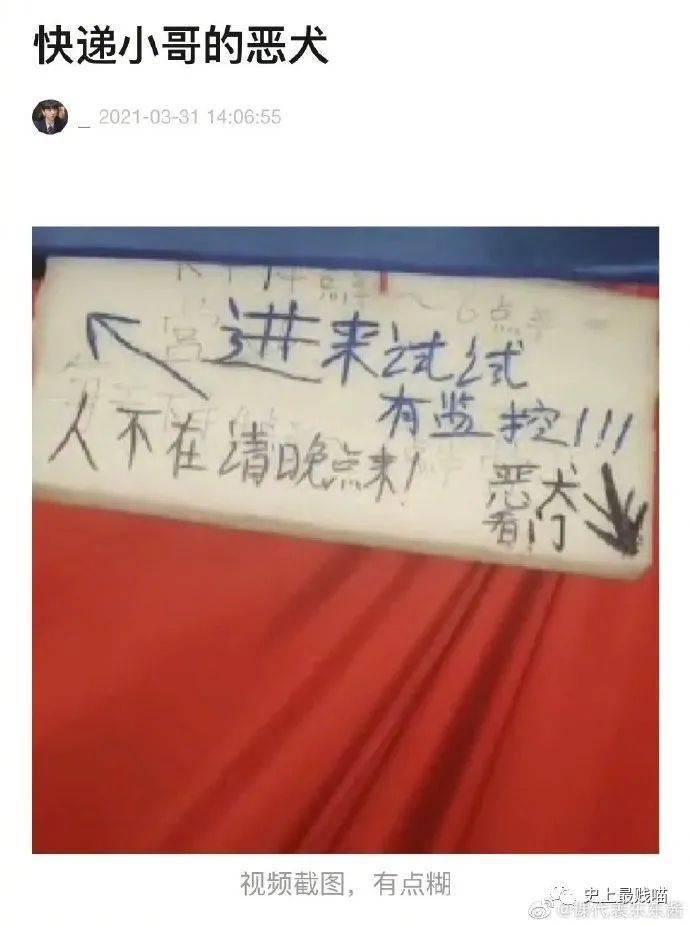 快递小哥的恶犬
_ 2021-03-31 14:06:55
点半~6点半
进来试试
有监控!!!
人不在请晚点来!
恶犬
看门
视频截图，有点糊
史上最贱喵
@课代表乐乐酱